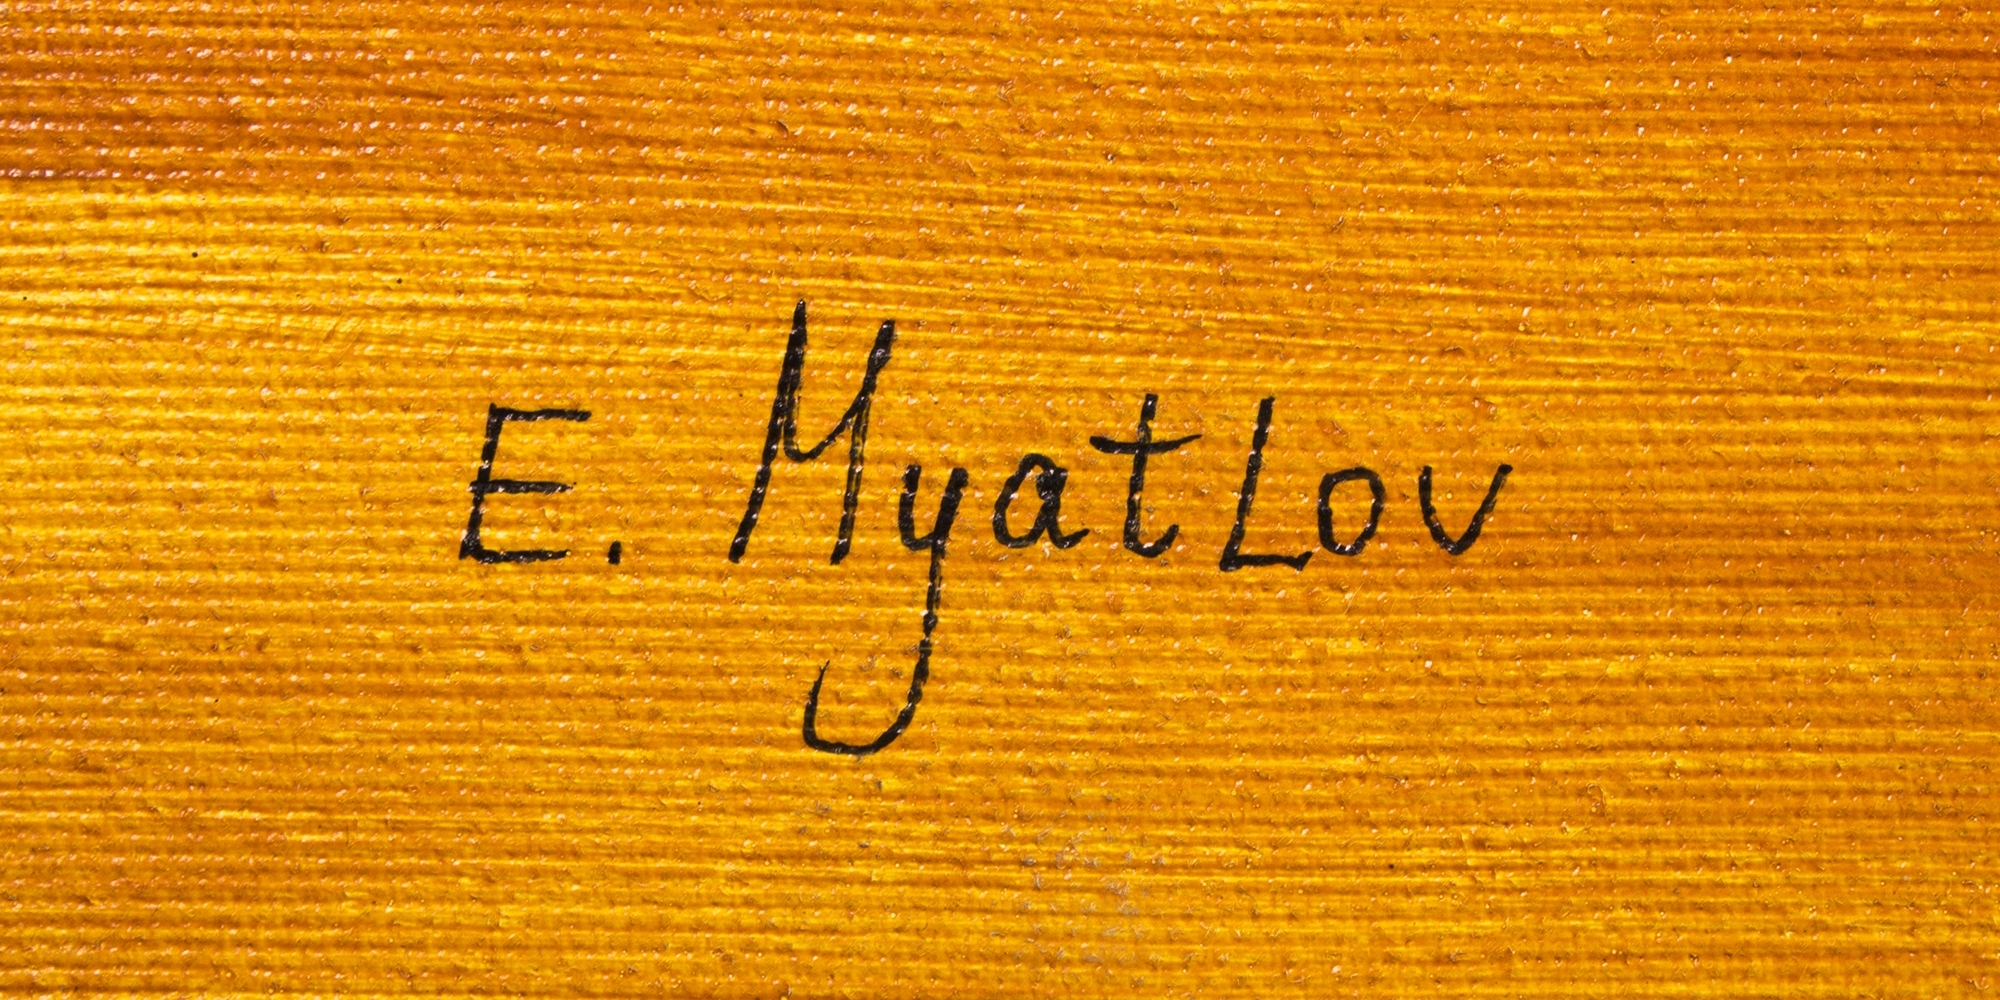 E. MyatLov